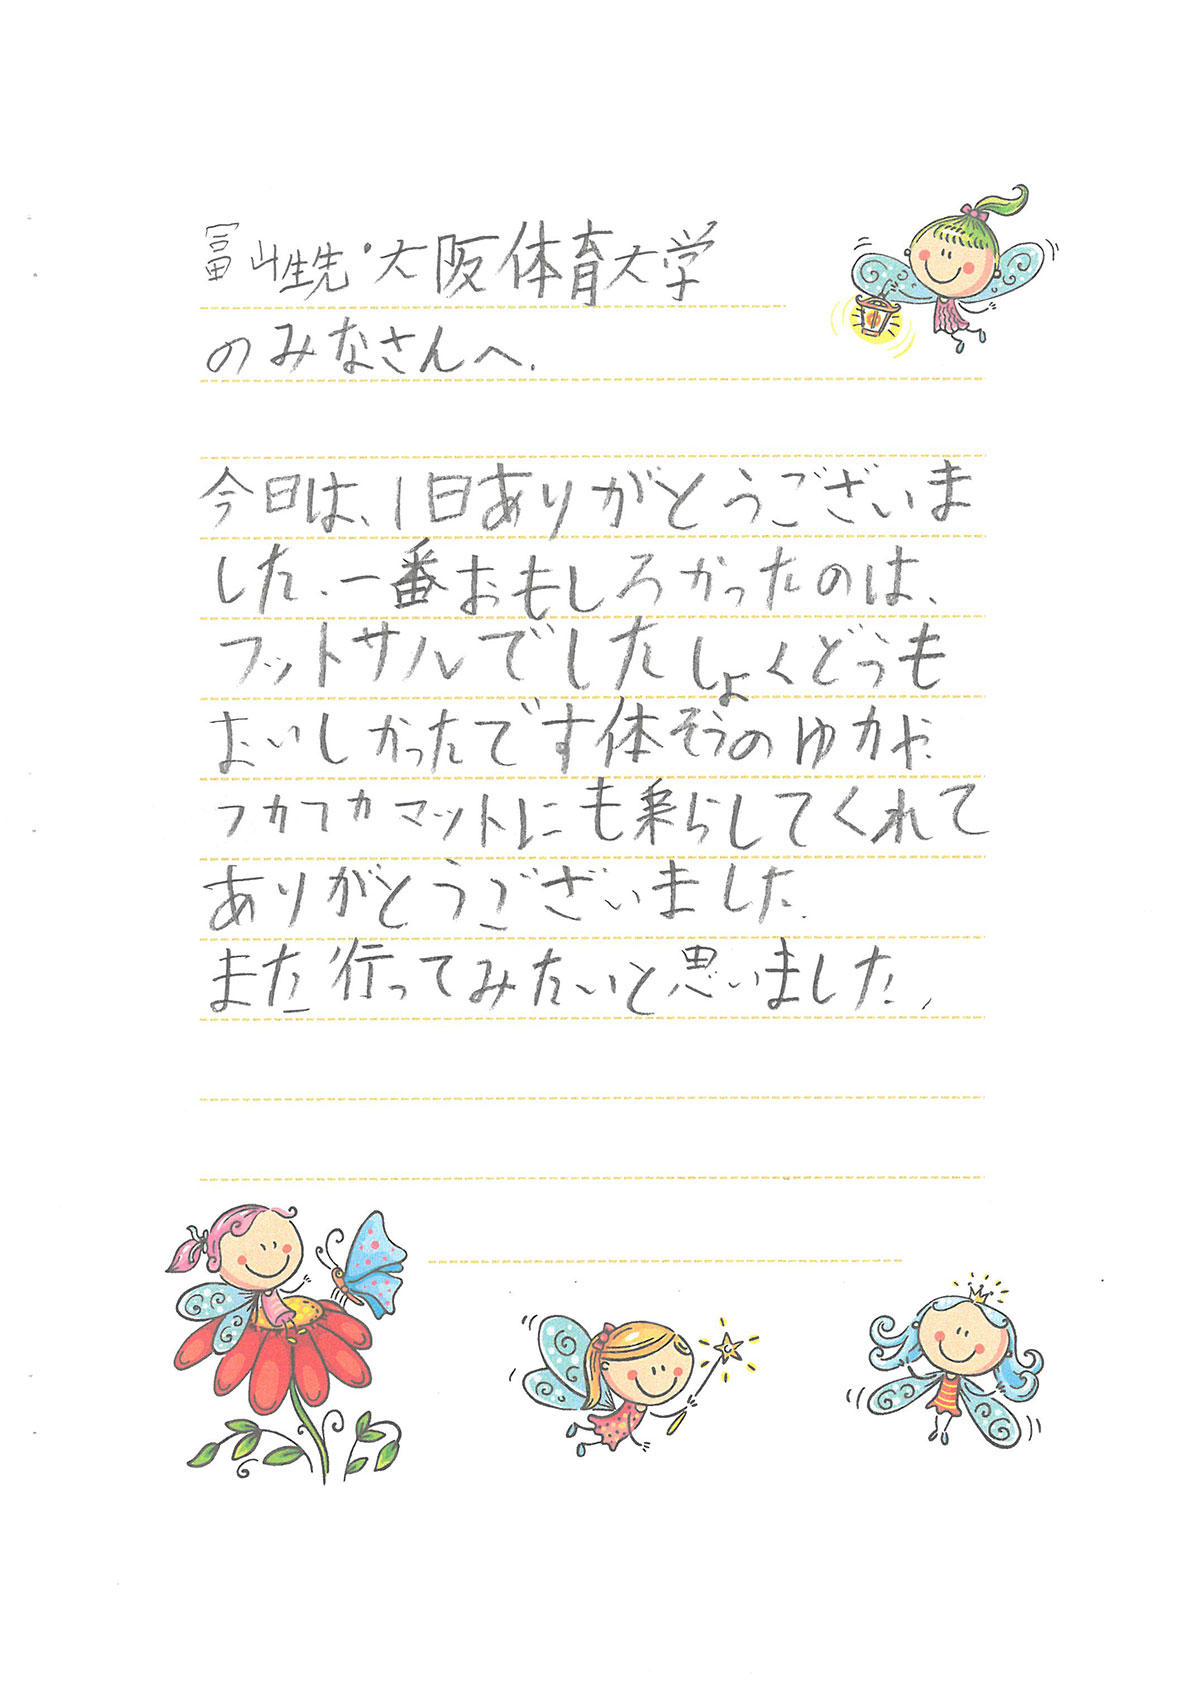 冨山先生・大阪体育大学
のみなさんへ.
今日は、1日ありがとうございま
した.一番おもしろかったのは、
フットサルでしたしょくどうも
おいしかったです体そうのゆかや
フカフカマットにも来らしてくれて
ありがとうございました.
また行ってみたいと思いました.